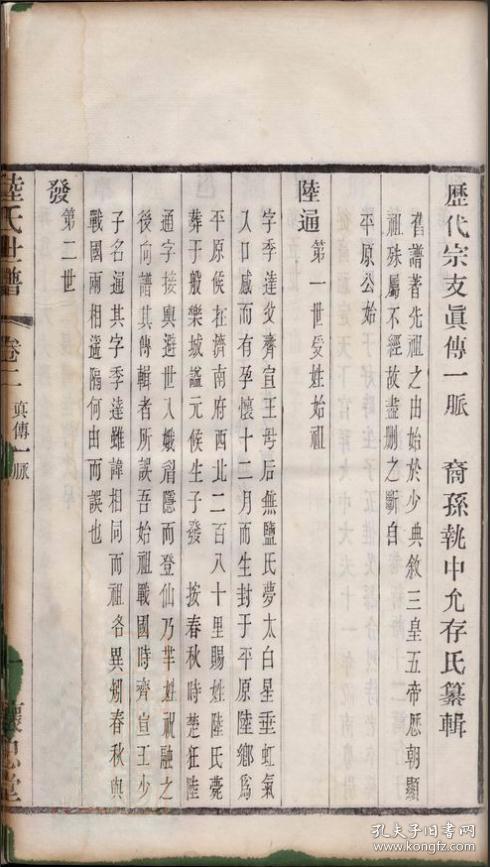 歷代宗支眞傳一脈 裔孫執中允存氏纂輯
舊譜著先祖之由始於少典敘三皇五帝歷朝顯
祖殊屬不經故盡刪之斷自
平原公始
陸通 第一世受姓始祖
字季達父齊宣王母后無鹽氏夢太白星垂虹氣
入口感而有孕懷十二月而生封于平原陸鄉爲
平原侯在濟南府西北二百八十里賜姓陸氏薨
葬于般樂城謚元侯生子發 按春秋時楚狂陸
通字接輿避世入娥眉隱而登仙乃芈姓祝融之
後向譜其傳輯者所誤吾始祖戰國時齊宣王少
子名通其字季達雖諱相同而祖各異烟春秋與
戰國兩相遼隔何由而誤也
發 第二世
陸氏世譜 卷二 眞傳一脈 一 懷忠堂
孔夫子旧书网